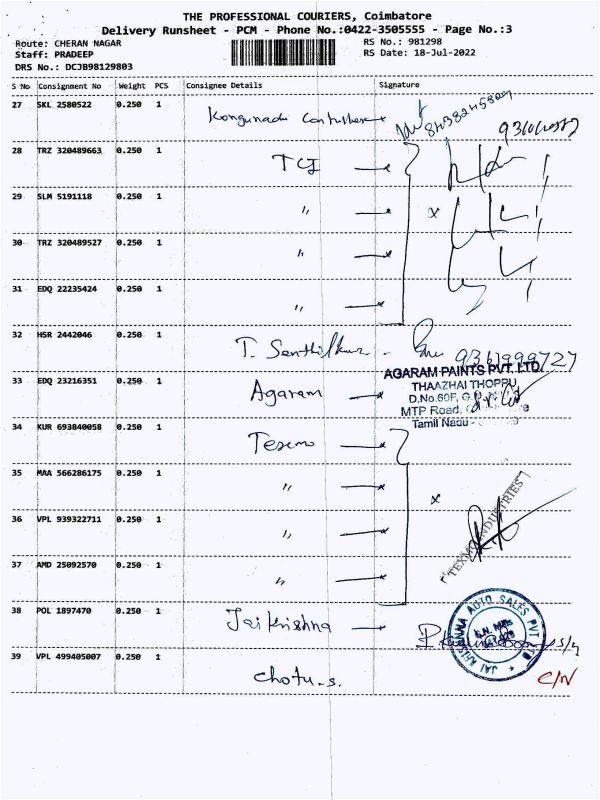 THE PROFESSIONAL COURIERS, Coimbatore
Delivery Runsheet - PCM - Phone No.:0422-3505555 - Page No.:3
Route: CHERAN NAGAR RS No.: 981298
Staff: PRADEEP RS Date: 18-Jul-2022
DRS No.: DCJB98129803
S No Consignment No Weight PCS Consignee Details Signature
27 SKL 2580522 0.250 1 Kongunadu
28 TRZ 320489663 0.250 1 TCI
29 SLM 5191118 0.250 1 "
30 TRZ 320489527 0.250 1 "
31 EDQ 22235424 0.250 1 "
32 HSR 2442046 0.250 1 T. Senthilkumar - 9361999727
33 EDQ 23216351 0.250 1 Agaram
AGARAM PAINTS PVT. LTD.
THAAZHAI THOPPU
D.No.60F,
MTP Road,
Tamil Nadu -
34 KUR 693840058 0.250 1 Texmo
35 MAA 566286175 0.250 1 "
36 VPL 939322711 0.250 1 "
TEXMO INDUSTRIES
37 AMD 25092570 0.250 1 "
38 POL 1897470 0.250 1 Jai Krishna
JAI KRISHNNA AUTO SALES PVT LTD
39 VPL 499405007 0.250 1 Chotu.s.
C/N